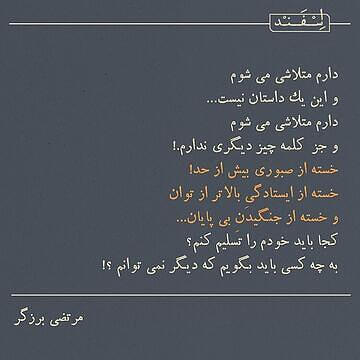 لِسْفَنْد
دارم متلاشی می شوم
و این یك داستان نیست...
دارم متلاشی می شوم
و جز کلمه چیز دیگری ندارم.!
خسته از صبوری بیش از حد!
خسته از ایستادگیِ بالاتر از توان
و خسته از جنگیدَنِ بی پایان...
کجا باید خودم را تسلیم کنم؟
به چه کسی باید بگویم که دیگر نمی توانم ؟!
مرتضی برزگر